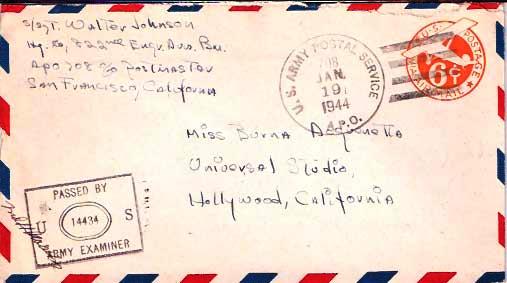 S/Sgt. Walter Johnson
Hq. Co. 822nd Engr. Avn. Bn.
APO 708 c/o Postmaster
San Francisco, California
U.S. ARMY POSTAL SERVICE
708
JAN.
19
1944
A.P.O.
U.S. POSTAGE
VIA AIR MAIL
6¢
Miss Burna Acquanetta
Universal Studio,
Hollywood, California
PASSED BY
U 14434 S
ARMY EXAMINER